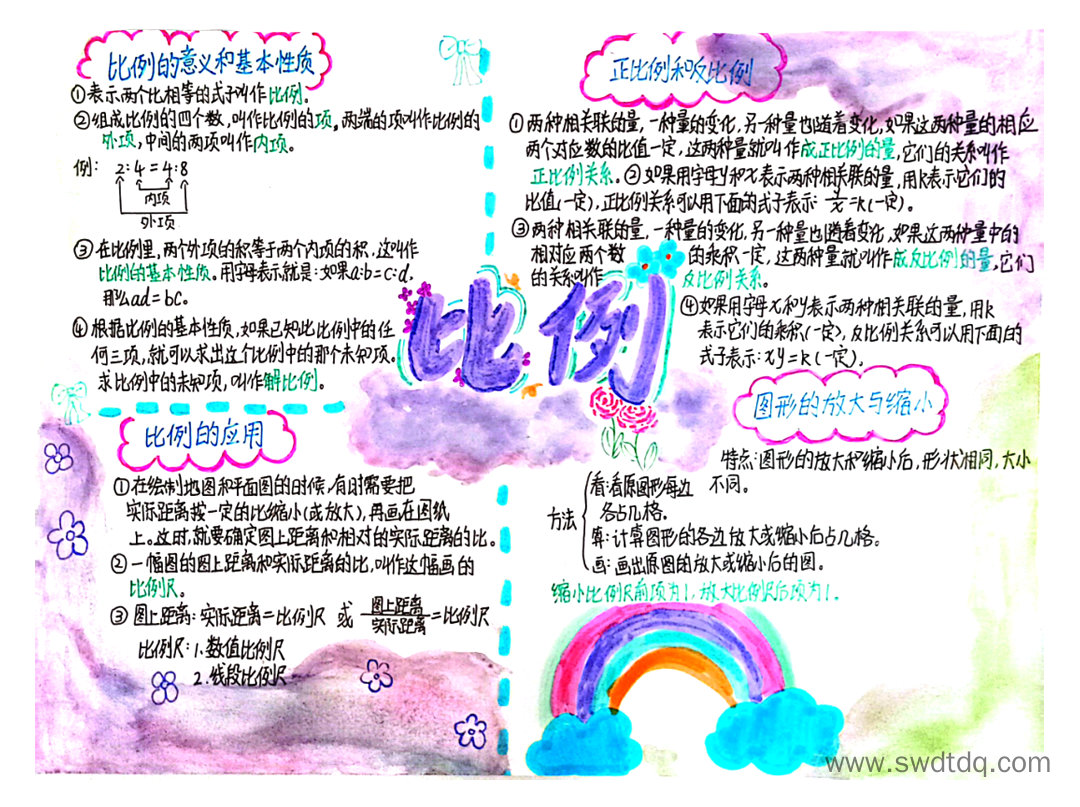 比例的意义和基本性质
①表示两个比相等的式子叫作比例。
②组成比例的四个数,叫作比例的项。两端的项叫作比例的
外项,中间的两项叫作内项。
例: 2:4=4:8
内项
外项
③在比例里,两个外项的积等于两个内项的积,这叫作
比例的基本性质。用字母表示就是:如果a:b=c:d,
那么ad=bc。
④根据比例的基本性质,如果已知比比例中的任
何三项,就可以求出这个比例中的那个未知项。
求比例中的未知项,叫作解比例。
正比例和反比例
①两种相关联的量,一种量的变化,另一种量也随着变化,如果这两种量的相应
两个对应数的比值一定,这两种量就叫作成正比例的量,它们的关系叫作
正比例关系。②如果用字母y和x表示两种相关联的量,用k表示它们的
比值(一定),正比例关系可以用下面的式子表示: y/x=k(一定)。
③两种相关联的量,一种量的变化,另一种量也随着变化,如果这两种量中的
相对应两个数的乘积一定,这两种量就叫作成反比例的量,它们
的关系叫作反比例关系。
④如果用字母x和y表示两种相关联的量,用k
表示它们的乘积(一定),反比例关系可以用下面的
式子表示:xy=k(一定)。
比例
比例的应用
①在绘制地图和平面图的时候,有时需要把
实际距离按一定的比缩小(或放大),再画在图纸
上。这时,就要确定图上距离和相对的实际距离的比。
②一幅图的图上距离和实际距离的比,叫作这幅画的
比例尺。
③图上距离:实际距离=比例尺 或 图上距离/实际距离=比例尺
比例尺:1.数值比例尺
2.线段比例尺
图形的放大与缩小
特点:图形的放大和缩小后,形状相同,大小
不同。
方法
看:看原图形每边
各占几格。
算:计算图形的各边放大或缩小后占几格。
画:画出原图的放大或缩小后的图。
缩小比例尺前项为1,放大比例尺后项为1.
www.swdtdq.com